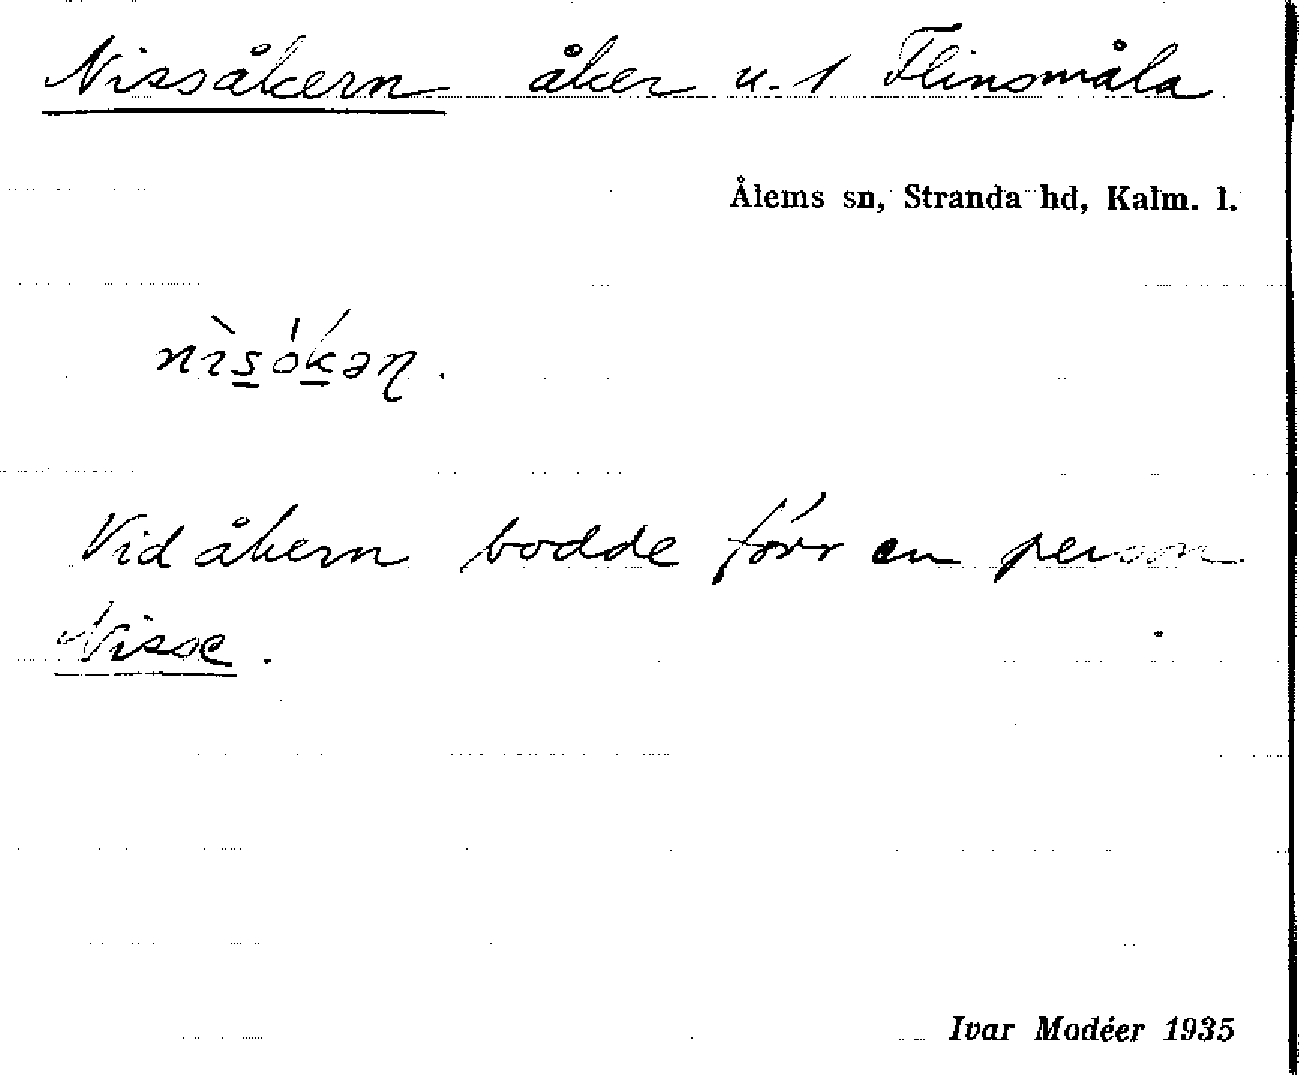 Nissåkern åker u. 1 Flinsmåla
Ålems sn, Stranda hd, Kalm. l.
nìsókəɳ.
Vid åkern bodde förr en person
Nisse.
Ivar Modéer 1935